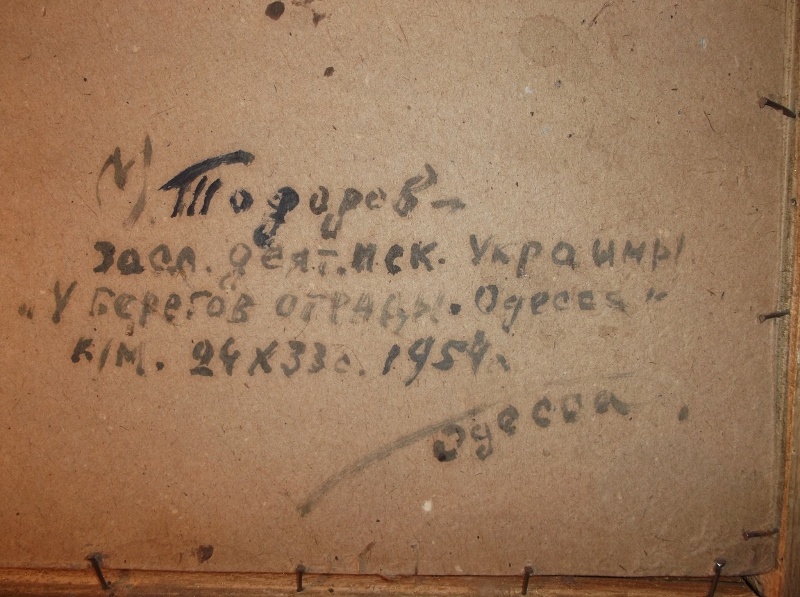 Тодоров –
засл. деят. иск. Украины
„У берегов отрады. Одесса"
к/м. 24х33с. 1954г.
Одесса.